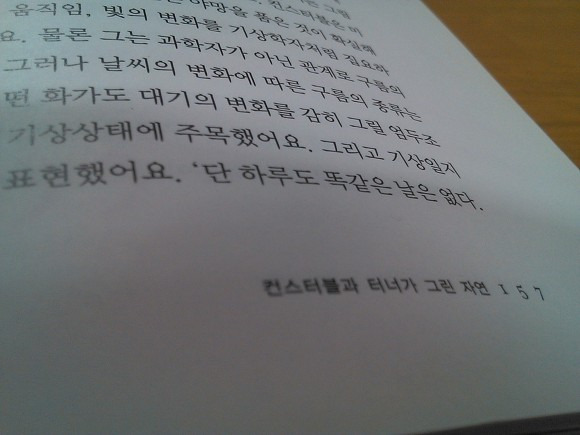 야망을 품은 것이 확실해
움직임, 빛의 변화를 기상학자처럼 집요하
요. 물론 그는 과학자가 아닌 관계로 구름의
그러나 날씨의 변화에 따른 구름의 종류는
떤 화가도 대기의 변화를 감히 그릴 엄두조
기상상태에 주목했어요. 그리고 기상일지
표현했어요. ‘단 하루도 똑같은 날은 없다.
컨스터블과 터너가 그린 자연 157